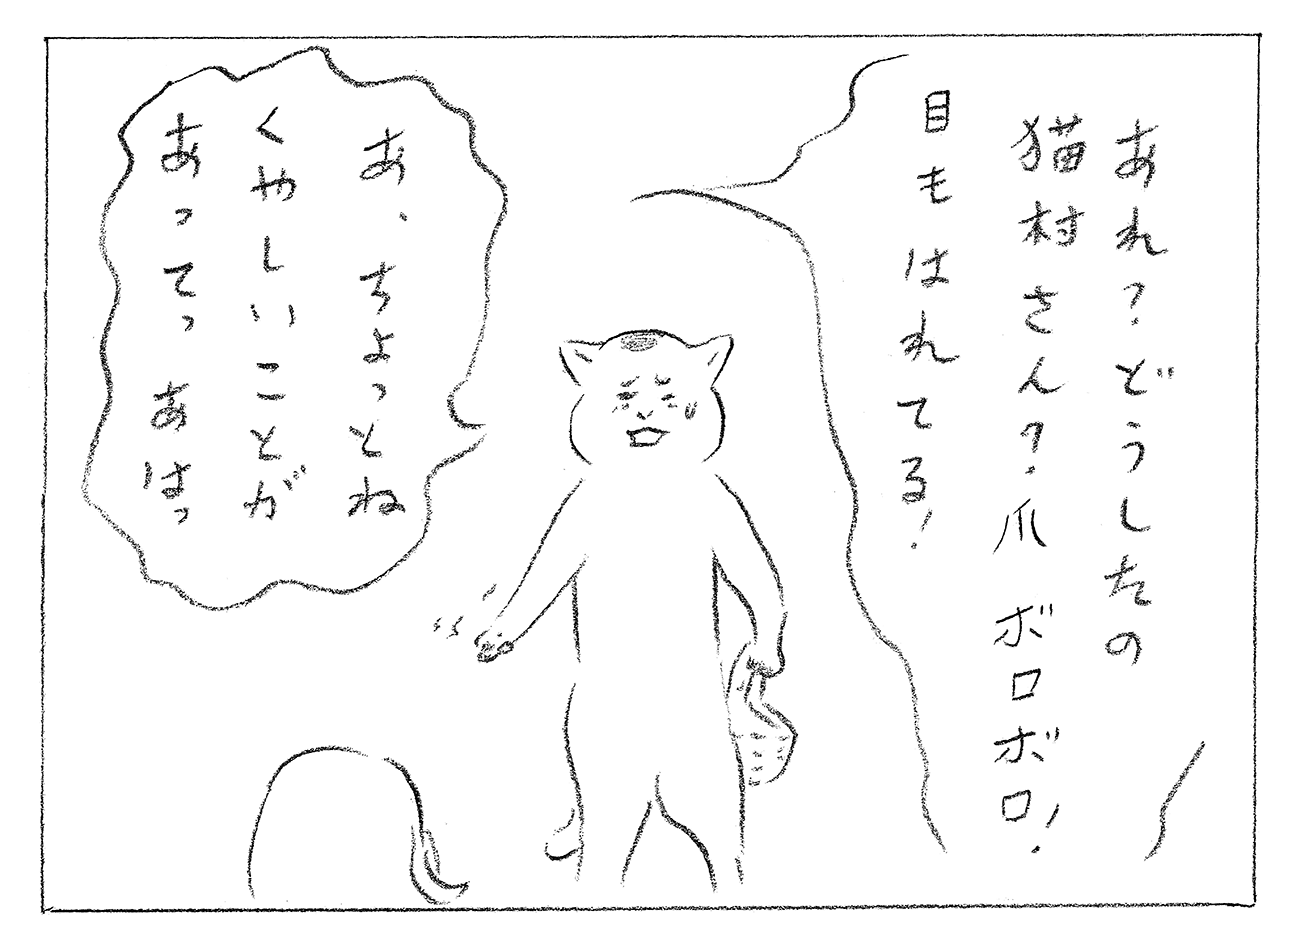 あれ？どうしたの
猫村さん？爪ボロボロ！
目もはれてる！
あ、ちょっとね
くやしいことが
あってっ あはっ